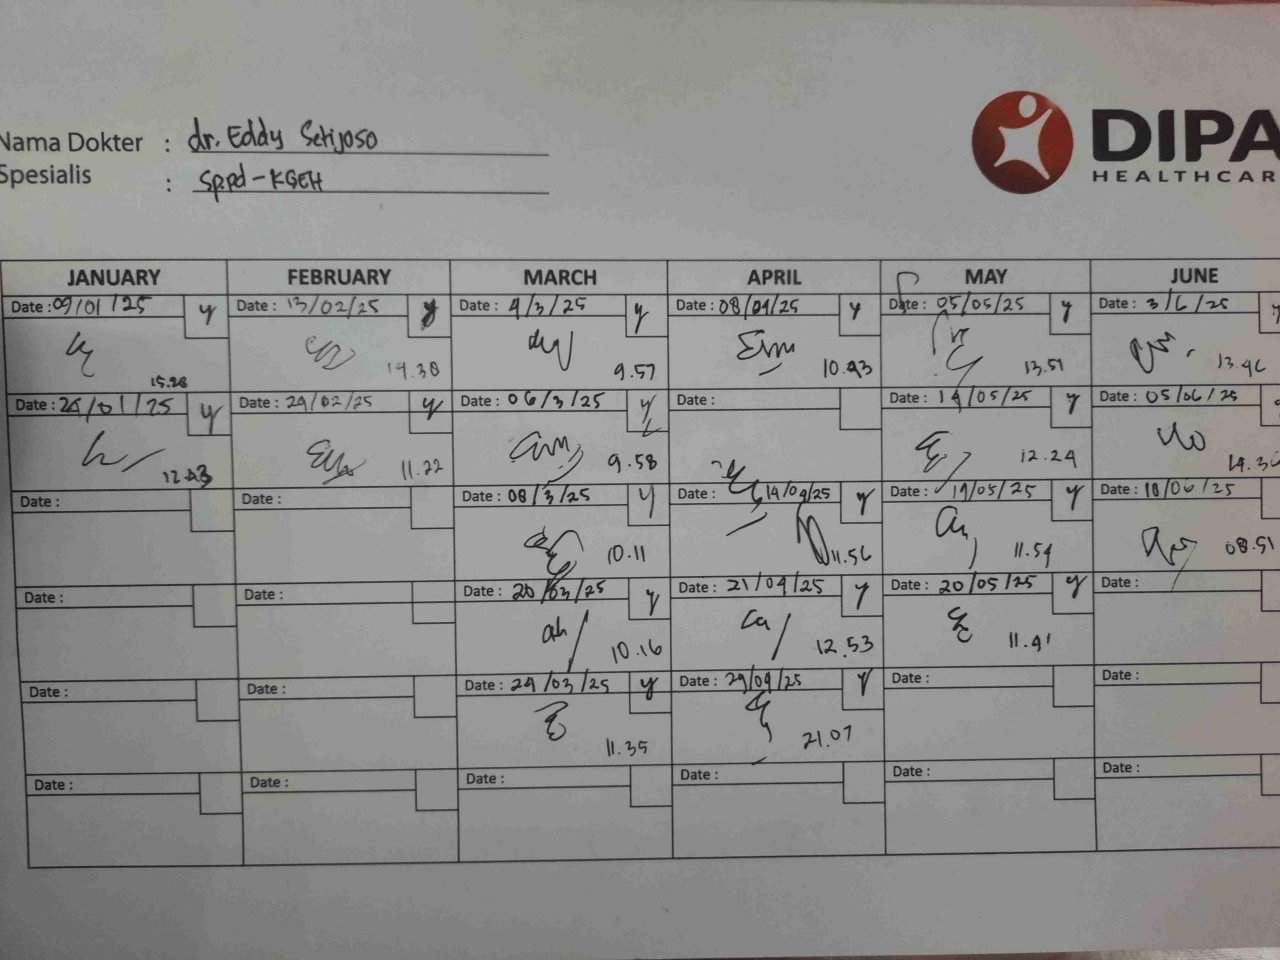 Nama Dokter : dr. Eddy Setijoso
Spesialis : Sp.pd-KGEH
DIPA
HEALTHCAR
JANUARY FEBRUARY MARCH APRIL MAY JUNE
Date : 09/01/25 y Date : 13/02/25 y Date : 4/3/25 y Date : 08/04/25 y Date : 05/05/25 y Date : 3/6/25 y
15.28 14.38 9.57 10.43 13.51 13.46
Date : 24/01/25 y Date : 24/02/25 y Date : 06/3/25 y Date : Date : 14/05/25 y Date : 05/06/25
12.43 11.22 9.58 12.24 14.36
Date : Date : Date : 08/3/25 y Date : 14/04/25 y Date : 19/05/25 y Date : 10/06/25
10.11 11.56 11.54 08.51
Date : Date : Date : 20/03/25 y Date : 21/04/25 y Date : 20/05/25 y Date :
10.16 12.53 11.41
Date : Date : Date : 24/03/25 y Date : 29/04/25 y Date : Date :
11.35 21.07
Date : Date : Date : Date : Date : Date :